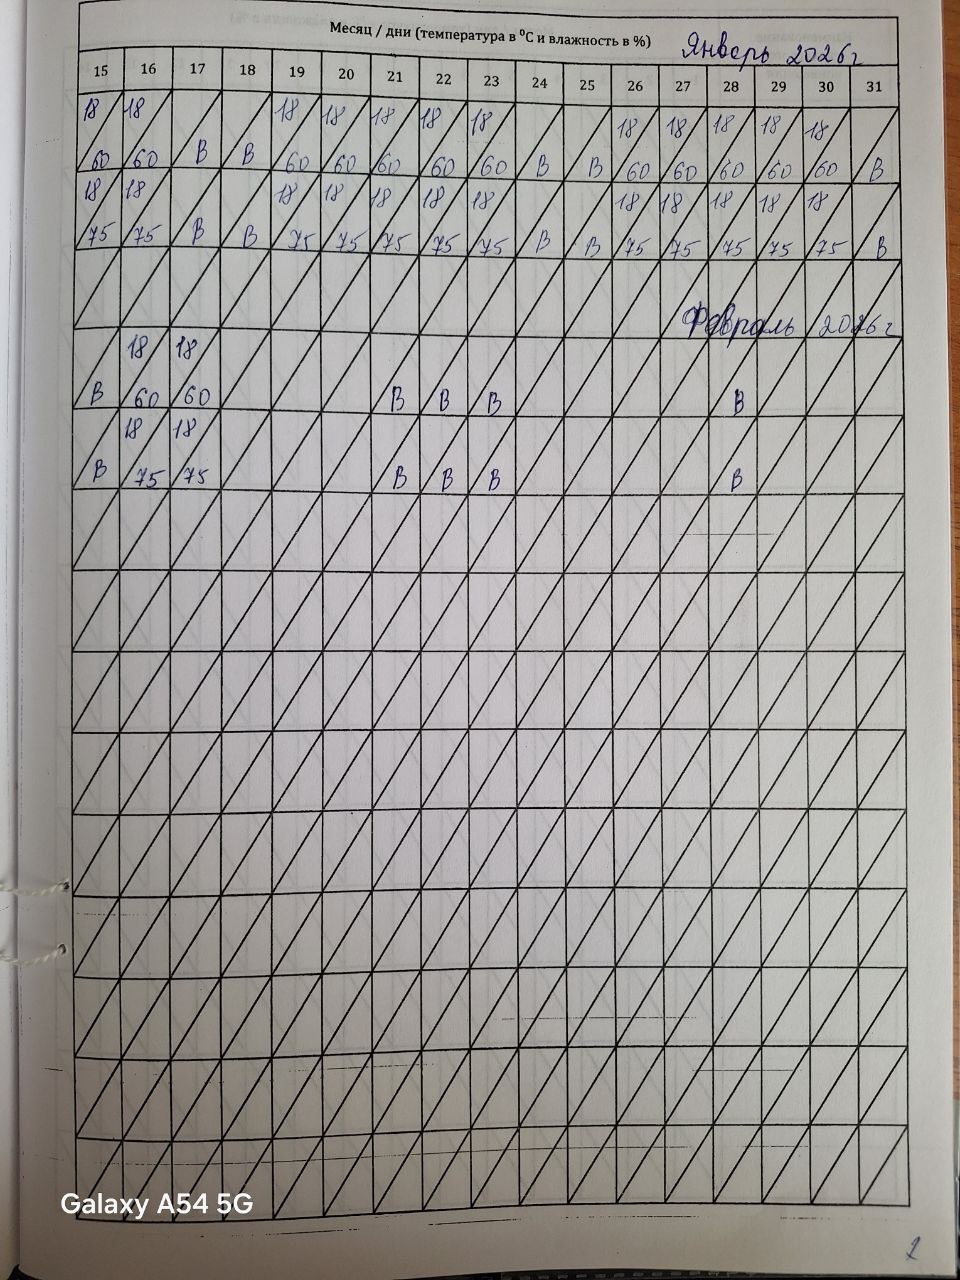 Месяц / дни (температура в °С и влажность в %) Январь 2026г
15 16 17 18 19 20 21 22 23 24 25 26 27 28 29 30 31
18 18 18 18 18 18 18 18 18 18 18 18
60 60 В В 60 60 60 60 60 В В 60 60 60 60 60 В
18 18 18 18 18 18 18 18 18 18 18 18
75 75 В В 75 75 75 75 75 В В 75 75 75 75 75 В
Февраль 2026г
18 18
В 60 60 В В В В
18 18
В 75 75 В В В В
Galaxy A54 5G
1